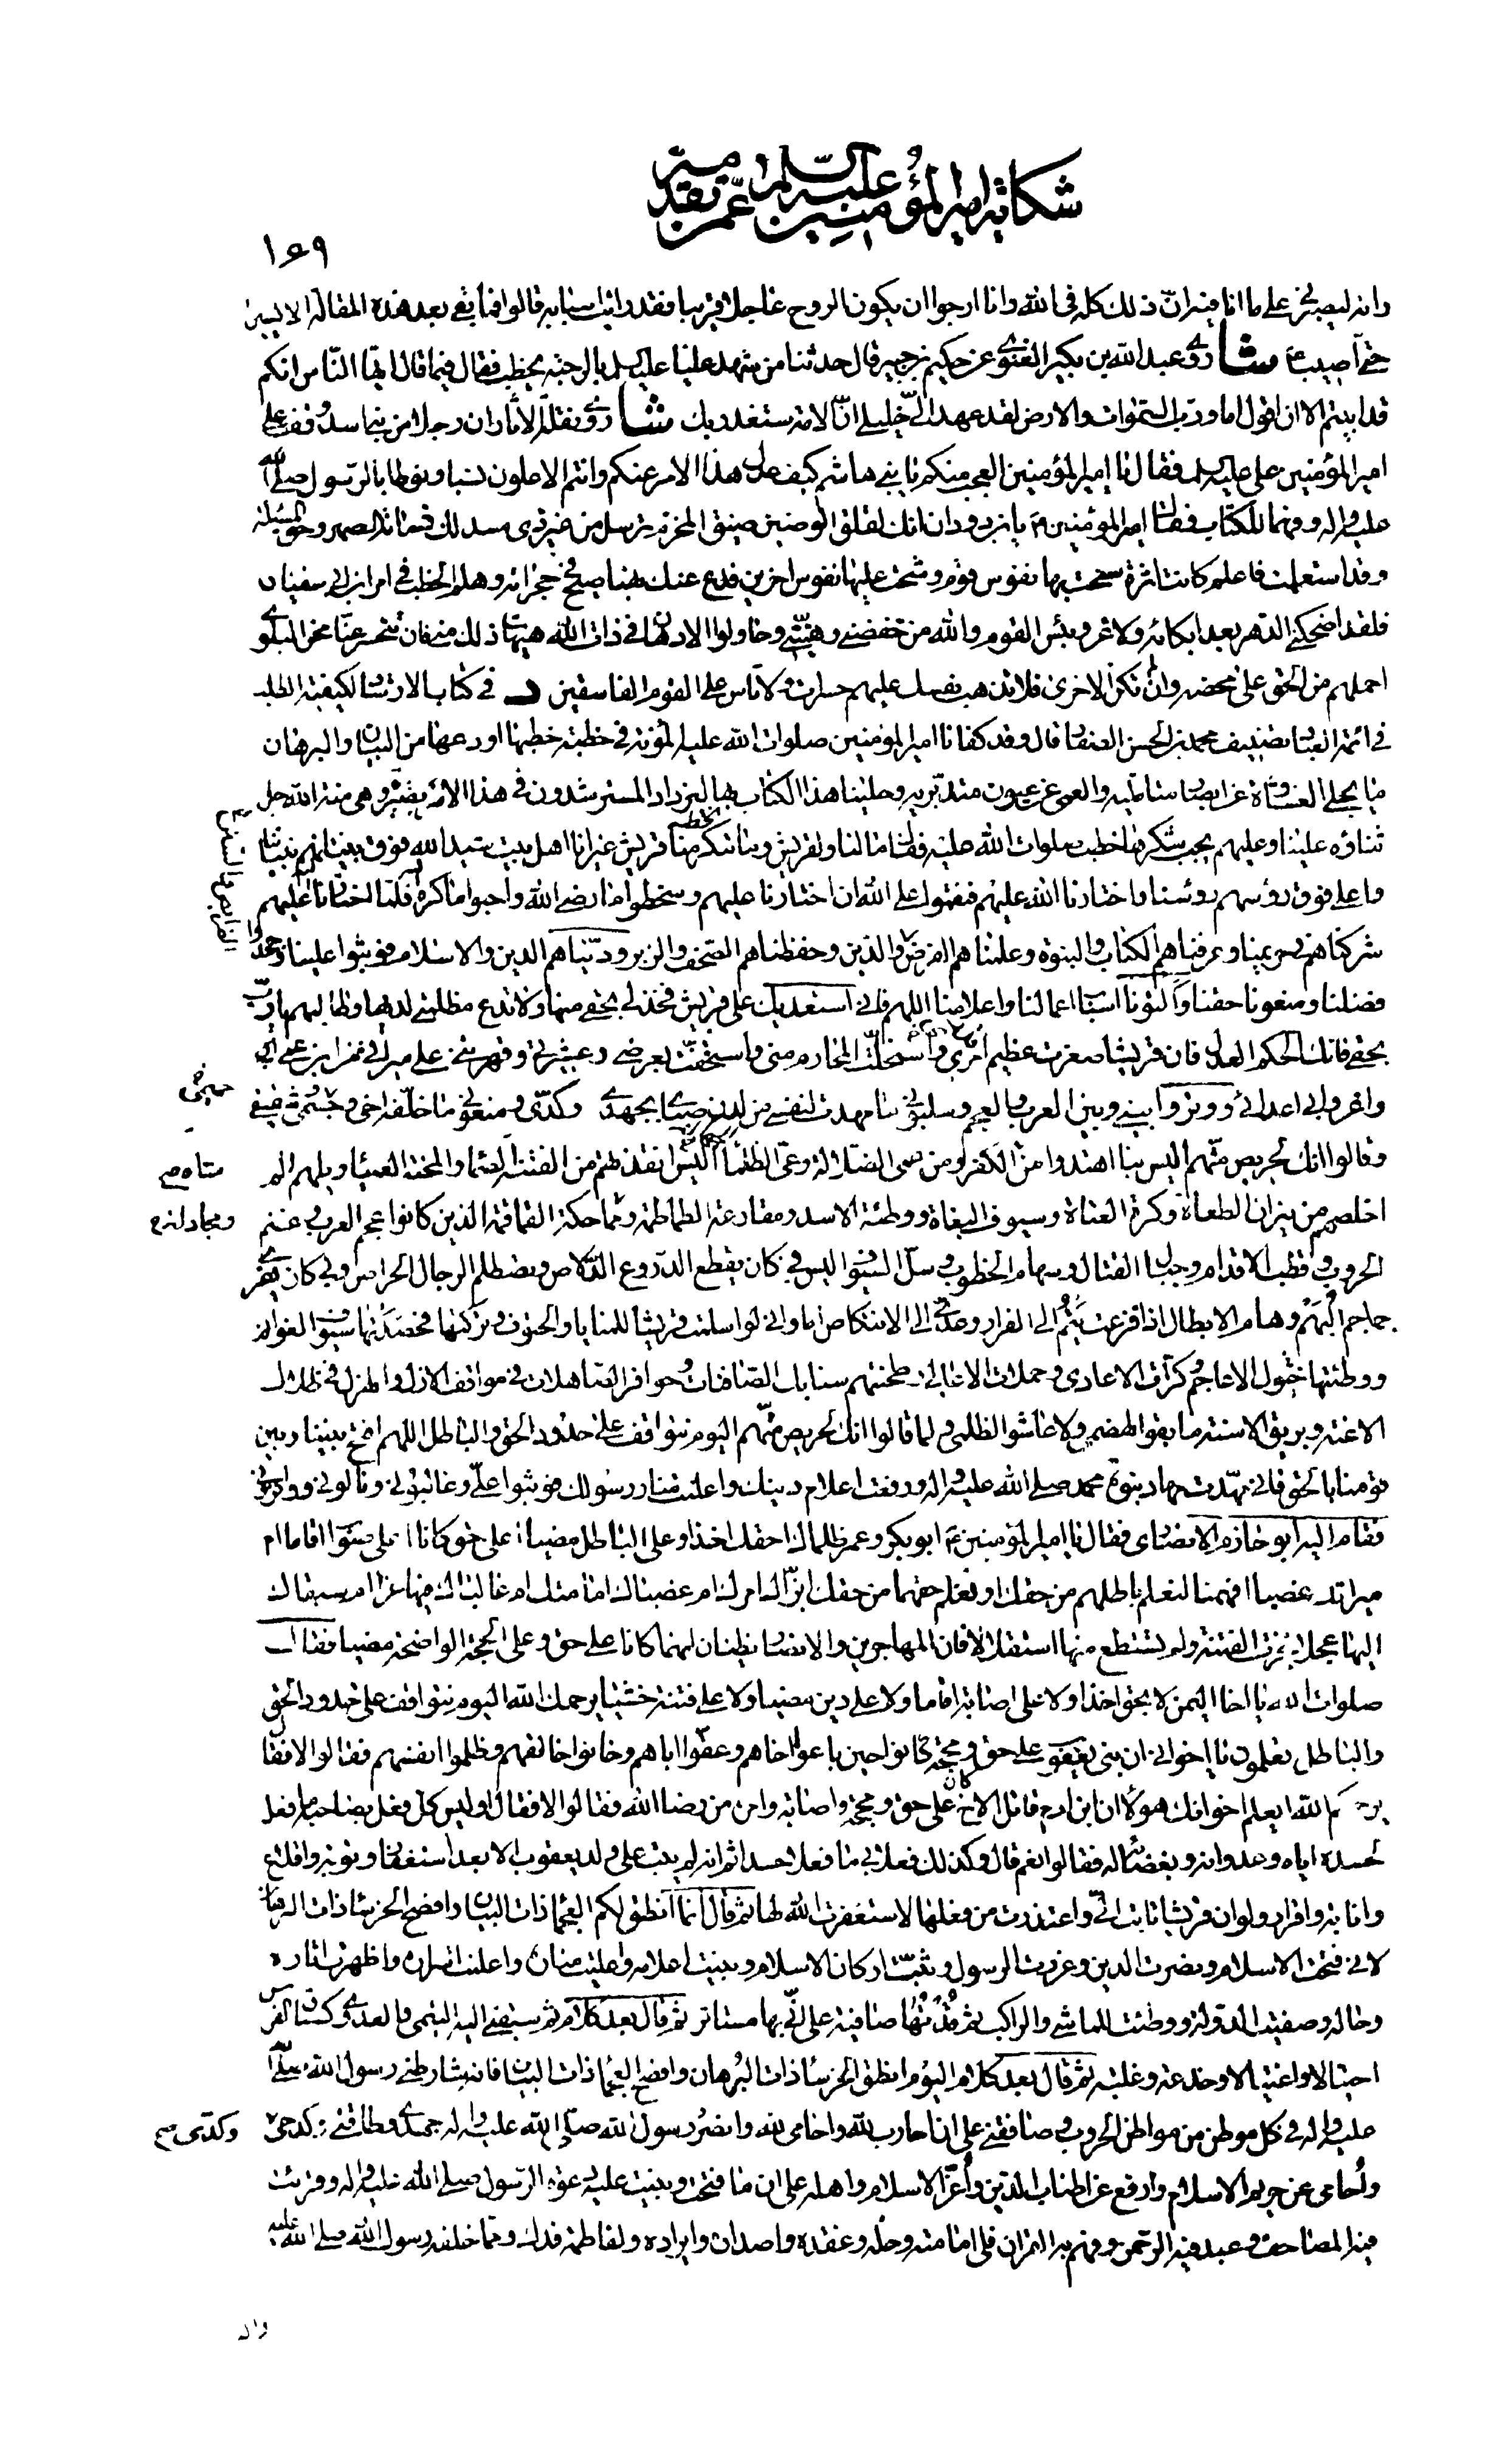 شكاية امير المؤمنين عليه السلام عمن تقدمه
١٥٩
وانه ليصبرني على ما انا فيه ان ذلك كله في الله وانا ارجو ان يكون الروح عاجلا قريبا فقد رايت اسبابه قالوا فما بقي بعد هذه المقالة الا يسيرا
حتى اصيب ع شا روى عبد الله بن بكير الغنوي عن حكيم بن جبير قال حدثنا من شهد عليا عليه السلم بالرحبة يخطب فقال فيما قال ايها الناس انكم
قد ابيتم الا ان اقول اما ورب السموات والارض لقد عهد الي خليلي ان الامة ستغدر بك شا روى نقلة الاثار ان رجلا من بني اسد وقف على
امير المؤمنين علي عليه السلم فقال يا امير المؤمنين العجب منكم يا بني هاشم كيف عدل هذا الامر عنكم وانتم الاعلون نسبا ونوطا بالرسول صلى الله
عليه واله وفهما للكتاب فقال امير المؤمنين ع يا بن دودان انك لقلق الوضين ضيق المخزم ترسل من غير ذي مسد لك ذمامة الصهر وحق المسئلة
وقد استعلمت فاعلم كانت اثرة سخت بها نفوس قوم وشحت عليها نفوس اخرين فدع عنك نهبا صيح في حجراته وهلم الخطب في امر ابن ابي سفيان
فلقد اضحكني الدهر بعد ابكائه ولا غرو بئس القوم والله من خفضني وهيني وحاولوا الادهان في ذات الله هيهات ذلك مني فان تنحسر عنا محن البلوى
احملهم من الحق على محضه وان تكن الاخرى فلا تذهب نفسك عليهم حسرات ولا تاس على القوم الفاسقين د في كتاب الارشاد لكيفية الطلب
في ائمة العباد تصنيف محمد بن الحسن الصفار قال وقد كفانا امير المؤمنين صلوات الله عليه المؤنة في خطبة خطبها اودعها من البيان والبرهان
ما يجلي الغشاوة عن ابصار متأمليه والعمى عن عيون متدبريه وحلينا هذا الكتاب بها ليزداد المسترشدون في هذا الامر بصيرة وهي منة الله جل
ثناؤه علينا وعليهم يجب شكرها خطب صلوات الله عليه فقال ما لنا ولقريش وما تنكر منا قريش غير انا اهل بيت شيد الله فوق بنيانهم بنياننا
واعلى فوق رؤسهم رؤسنا واختارنا الله عليهم فنقموا على الله ان اختارنا عليهم وسخطوا ما رضي الله واحبوا ما كره فلما اختارنا عليهم
شركناهم في حريمنا وعرفناهم الكتاب والنبوة وعلمناهم الفرض والدين وحفظناهم الصحف والزبر وديناهم الدين والاسلام فوثبوا علينا وجحدوا
فضلنا ومنعونا حقنا والتونا اسباب اعمالنا واعلامنا اللهم فاني استعديك على قريش فخذ لي بحقي منها ولا تدع مظلمتي لديها وطالبهم يا رب
بحقي فانك الحكم العدل فان قريشا صغرت عظيم امري واستحلت المحارم مني واستخفت بعرضي وعشيرتي وقهرتني على ميراثي من ابن عمي
واغروا بي اعدائي ووتروا بيني وبين العرب والعجم وسلبوني ما مهدت لنفسي من لدن صباي بجهدي وكدي ومنعوني ما خلفه اخي
وقالوا انك لحريص متهم اليس بنا اهتدوا من الكفر ومن عمى الضلالة وعي الظلماء اليس انقذتهم من الفتنة الصماء والمحنة العمياء ويلهم الم
اخلصهم من نيران الطغاة وكرة العتاة وسيوف البغاة ووطئة الاسد ومقارعة الطماطمة ومماحكة القماقمة الذين كانوا عجم العرب وغنم
الحروب وقطب الاقدام وجبال القتال وسهام الخطوب وسل السيوف اليس بي كان يقطع الدروع الدلاص وتصطلم الرجال الحراص وبي كان يفرى
جماجم البهم وهام الابطال اذا فزعت تيم الى الفرار وعدي الى الانتكاص اما واني لو اسلمت قريشا للمنايا والحتوف وتركتها فحصدتها سيوف الغوانم
ووطئتها خيول الاعاجم وكرات الاعادي وحملات الاعالي وطحنتهم سنابك الصافنات وحوافر الصاهلات في مواقف الازل والهزل في ظلال
الاعنة وبريق الاسنة ما بقوا لهضمي ولا عاشوا لظلمي ولما قالوا انك لحريص متهم اليوم نتواقف على حدود الحق والباطل اللهم افتح بيننا وبين
قومنا بالحق فاني مهدت مهاد نبوة محمد صلى الله عليه واله ورفعت اعلام دينك واعلنت منار رسولك فوثبوا علي وغالبوني ونالوني وواتروني
فقام اليه ابو حازم الانصاري فقال يا امير المؤمنين ع ابو بكر وعمر ظلماك احقك اخذا وعلى الباطل مضيا اعلى حق كانا اعلى صواب اقاما ام
ميراثك غصبا افهمنا لنعلم باطلهم من حقك او نعلم حقهما من حقك ابزاك امرك ام غصباك امامتك ام غالباك فيها عزا ام سبقاك
اليها عجلا فجرت الفتنة ولم تستطع منها استقلالا فان المهاجرين والانصار يظنان انهما كانا على حق وعلى الحجة الواضحة مضيا فقال
صلوات الله يا اخا اليمن لا بحق اخذا ولا على اصابة اقاما ولا على دين مضيا ولا على فتنة خشيا يرحمك الله اليوم نتواقف على حدود الحق
والباطل تعلمون يا اخواني ان بني يعقوب على حق ومحجة كانوا حين باعوا اخاهم وعقوا اباهم وخانوا خالقهم وظلموا انفسهم فقالوا لا فقال
يرحمكم الله ايعلم اخوانك هؤلاء ان ابن ادم قاتل الاخ كان على حق ومحجة واصابة وامن من رضا الله فقالوا لا فقال اوليس كل فعل بصاحبه ما فعل
لحسده اياه وعدوانه وبغضائه له فقالوا نعم قال وكذلك فعلا بي ما فعلا حسدا ثم انه لم يتب على ولد يعقوب الا بعد استغفار وتوبة واقلاع
وانابة واقرار ولو ان قريشا تابت الي واعتذرت من فعلها لاستغفرت الله لها ثم قال انما انطق لكم العجماء ذات البيان وافصح الخرساء ذات البرهان
لاني فتحت الاسلام ونصرت الدين وعززت الرسول وثبت اركان الاسلام وبينت اعلامه واعليت مناره واعلنت اسراره واظهرت اثاره
وحاله وصفيت الدولة ووطئت للماشي والراكب ثم قدتها صافية على اني بها مستاثر ثم قال بعد كلام ثم سبقني اليه التيمي والعدوي كسباق الفرس
احتيالا واغتيالا وخدعة وغلبة ثم قال بعد كلام اليوم انطق الخرساء ذات البرهان وافصح العجماء ذات البيان فانه شارطني رسول الله صلى الله
عليه واله في كل موطن من مواطن الحروب وصافقني على ان احارب لله واحامي لله وانصر رسول الله صلى الله عليه واله جهدي وطاقتي وكدحي
واحامي عن حريم الاسلام وارفع عن اطناب الدين واعز الاسلام واهله على ان ما فتحت وبينت عليه دعوة الرسول صلى الله عليه واله وقرئت
فيه المصاحف وعبد فيه الرحمن وفهم به القران فلي امامته وحله وعقده واصداره وايراده ولفاطمة فدك ومما خلفه رسول الله صلى الله عليه
وكدي
ومجادلة